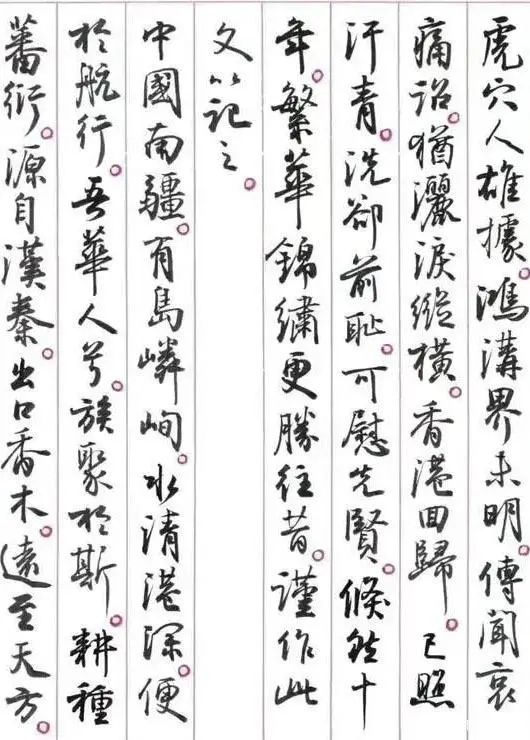 虎穴人雄據。鴻溝界未明。傳聞哀
痛詔。猶灑淚縱橫。香港回歸。已照
汗青。洗卻前恥。可慰先賢。倏然十
年。繁華錦繡更勝往昔。謹作此
文以記之。
中國南疆。有島嶙峋。水清港深。便
於航行。吾華人兮。族聚於斯。耕種
蕃衍。源自漢秦。出口香木。遠至天方。